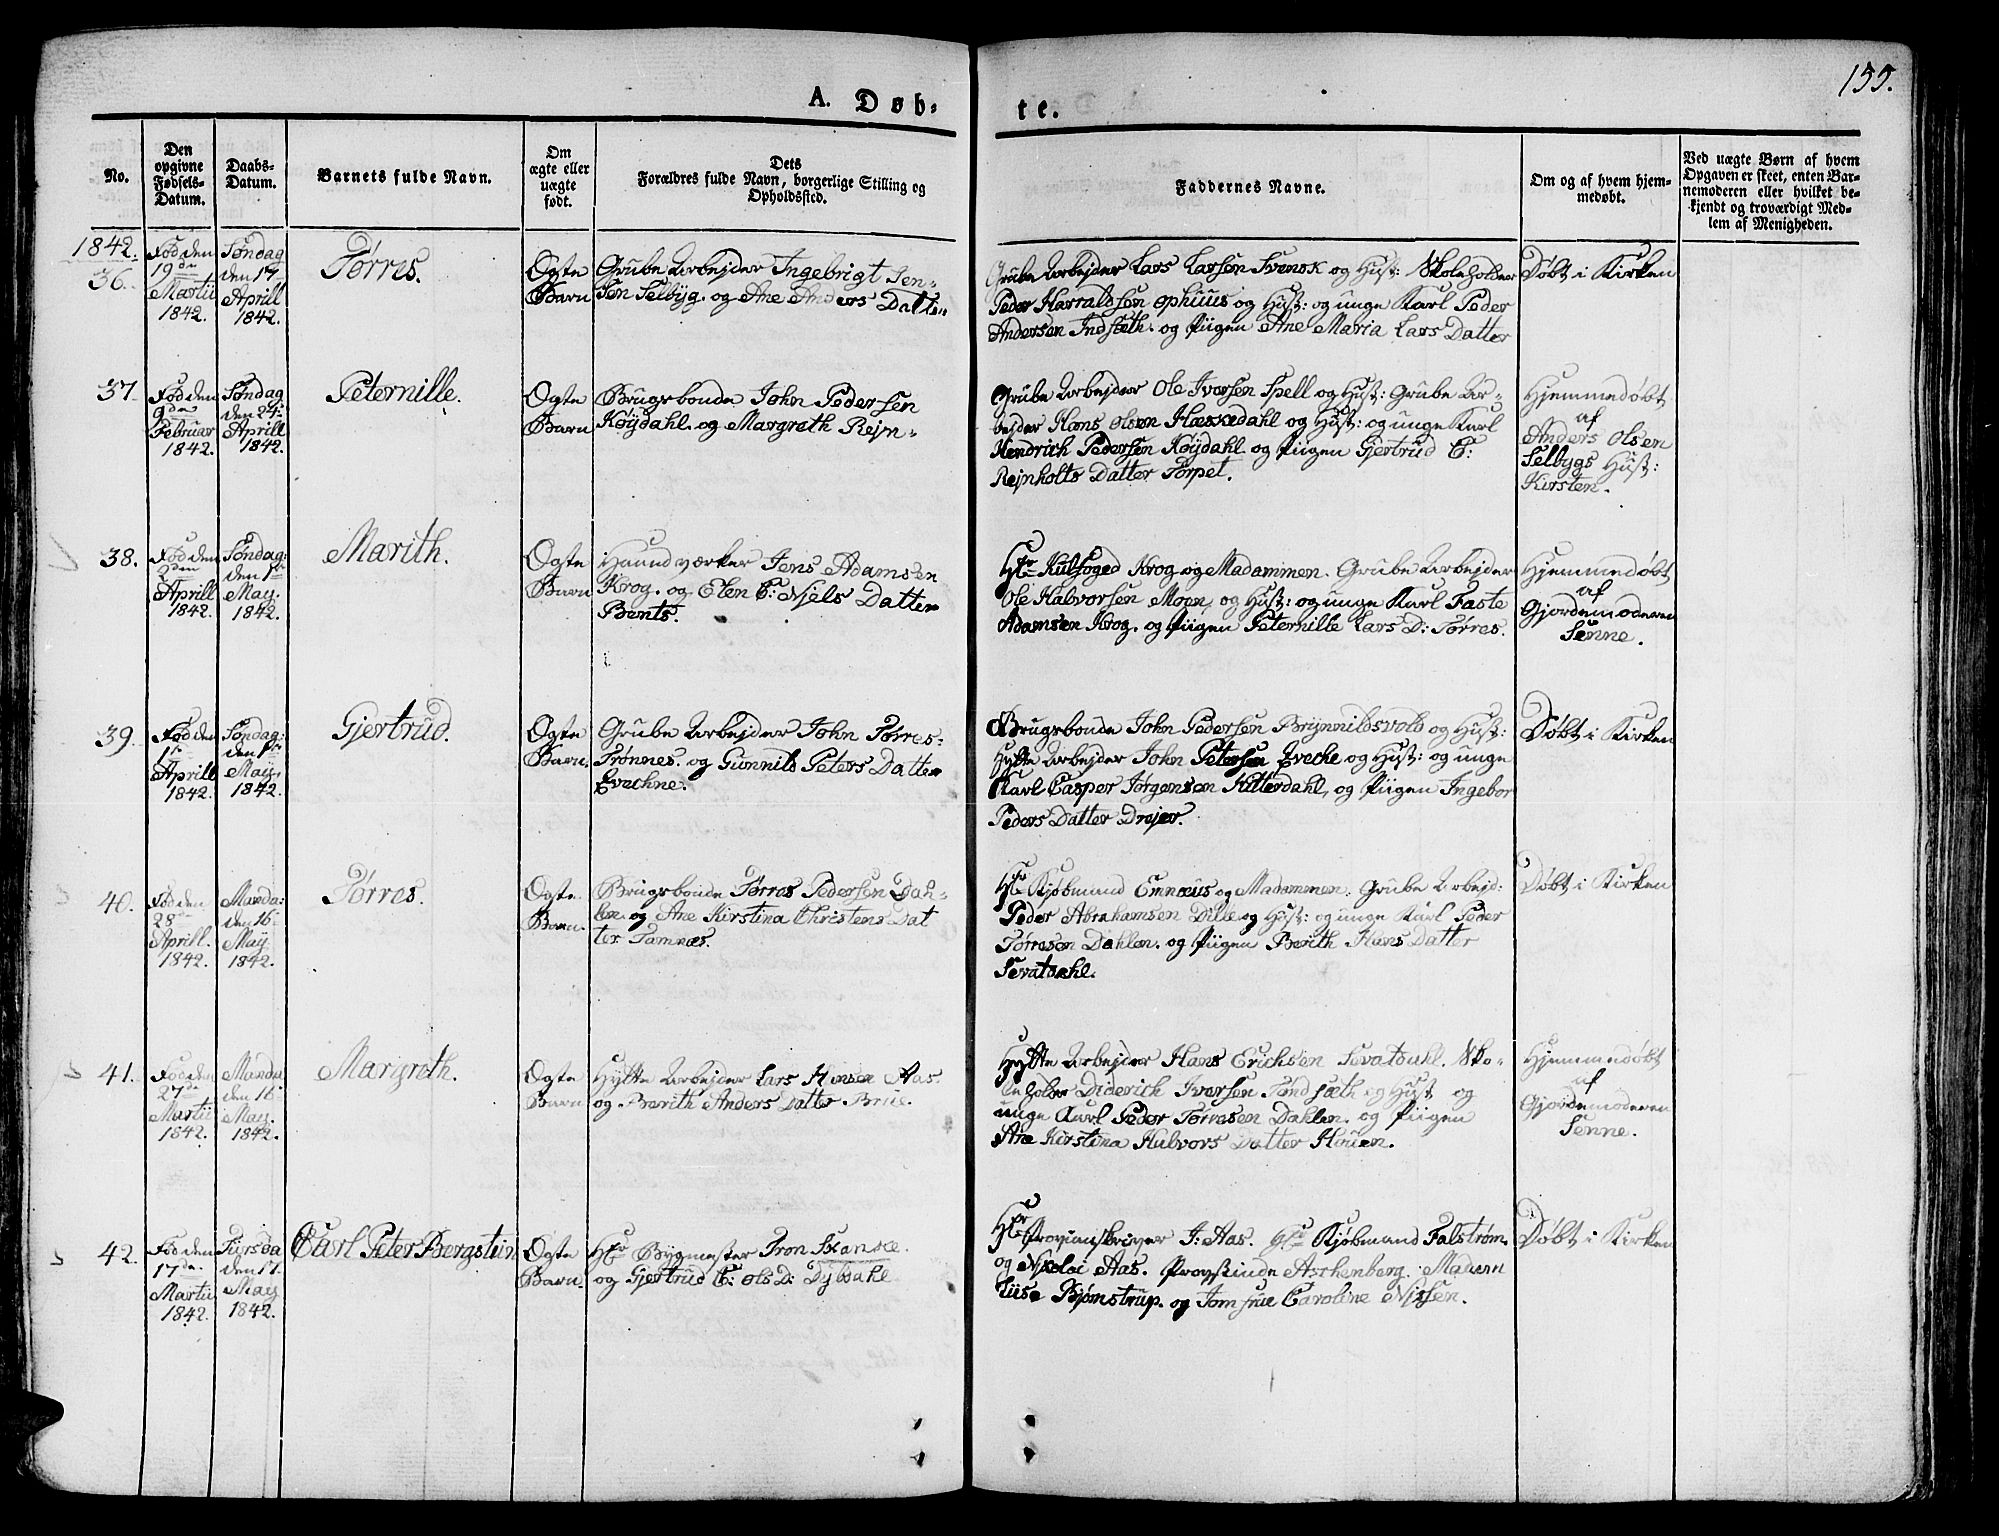 155.
A. Døb-
te.
No.
Den
opgivne
Fødsels-
Datum.
Daabs-
Datum.
Barnets fulde Navn.
Om
ægte eller
uægte
født.
Dets
Forældres fulde Navn, borgerlige Stilling og
Opholdssted.
Faddernes Navne.
Om og af hvem hjem-
medøbt.
Ved uægte Børn af hvem
Opgaven er skeet, enten Bar-
nemoderen eller hvilket be-
kjendt og troværdigt Med-
lem af Menigheden.
1842.
36.
Fød den
19de
Martii
1842.
Søndag
den 17
Aprill
1842.
Tørres.
Ogte
Barn
Grube Arbejder Ingebrigt Jen-
sen Selbyg. og Ane Anders Datter
Grube Arbejder Lars Larsen Svensk og Hust: Skoleholder
Peder Harraldsen Ophuus og Hust: og unge Karl Peder
Andersen Indsæth. og Piigen Ane Maria Lars Datter
Døbt i Kirken
37
Fød den
9de
Februar
1842.
Søndag
den 24
Aprill
1842.
Peternille.
Ogte
Barn
Brugsbonde John Pedersen
Køydahl. og Margreth Rejn-
Grube Arbejder Ole Iversen Spell og Hust: Grube Ar-
bejder Hans Olsen Hæskedahl og Hust: og unge Karl
Hendrich Pedersen Køydahl og Piigen Gjertrud E:
Rejnholts Datter Torpet.
Hjemmedøbt
af
Anders Olsen
Selbygs Hust:
Kirsten.
38.
Fød den
2den
Aprill
1842.
Søndag:
den 1ste
May.
1842.
Marith.
Ogte
Barn
Haandværker Jens Adamsen
Krog. og Elen E: Niels Datter
Bents.
Hr Kulfoged Krog og Madammen. Grube Arbejder
Ole Halvorsen Moen, og Hust: og unge Karl Faste
Adamsen Krog. og Piigen Peternille Lars D: Tørres.
Hjemmedøbt
af
Gjordemoderen
Senne.
39.
Fød den
1ste
Aprill
1842.
Søndag:
den 1ste
May.
1842.
Gjertrud.
Ogte
Barn.
Grube Arbejder John Tørres-
Trønnes. og Gunnild Peters Datter
Evechne.
Brugsbonde John Pedersen Brynnildsvold og Hust:
Hytte Arbejder John Petersen Eveche og Hust: og unge
Karl Casper Jørgensen Hitterdahl, og Piigen Ingebor
Peders Datter Drejer.
Døbt i Kirken
40.
Fød den
28de
Aprill.
1842.
Manda:
den 16
May.
1842.
Tørres.
Ogte
Barn.
Brugsbonde Tørres Pedersen Dah-
len. og Ane Kirstina Christens Dat
ter Tamnes.
Hr Kjøbmand Emnæus og Madammen. Grube Arbejd-
Peder Abrahamsen Dille og Hust: og unge Karl Peder
Tørresen Dahlen. og Piigen Berith Hans Datter
Sevatdahl.
Døbt i Kirken
41.
Fød den
27de
Martii
1842.
Manda
den 16
May.
1842.
Margreth.
Ogte
Barn
Hytte Arbejder Lars Hansen Aas.
og Berith Anders Datter Briie.
Hytte Arbejder Hans Erichsen Sevatdahl. Sko-
leholder Diderich Iversen Tøndsæth og Hust og
unge Karl Peder Tørresen Dahlen. og Piigen
Ane Kirstina Halvors Datter Houen.
Hjemmedøbt
af
Gjordemoderen
Senne.
42.
Fød den
17de
Martii
1842.
Tiirsda
den 17
May
1842.
Carl Peter Bergstein
Ogte
Barn.
Hr Bygmester Tron Skanke.
og Gjertrud E: Ols D: Dybdahl
Hr Provianskriver J: Aas. Hr Kjøbmand Falstrøm.
og Nikolai Aas. Provstinde Aschenberg. Madam
Liise Bjørnstrup. og Jomfrue Caroline Nissen.
Døbt i Kirken